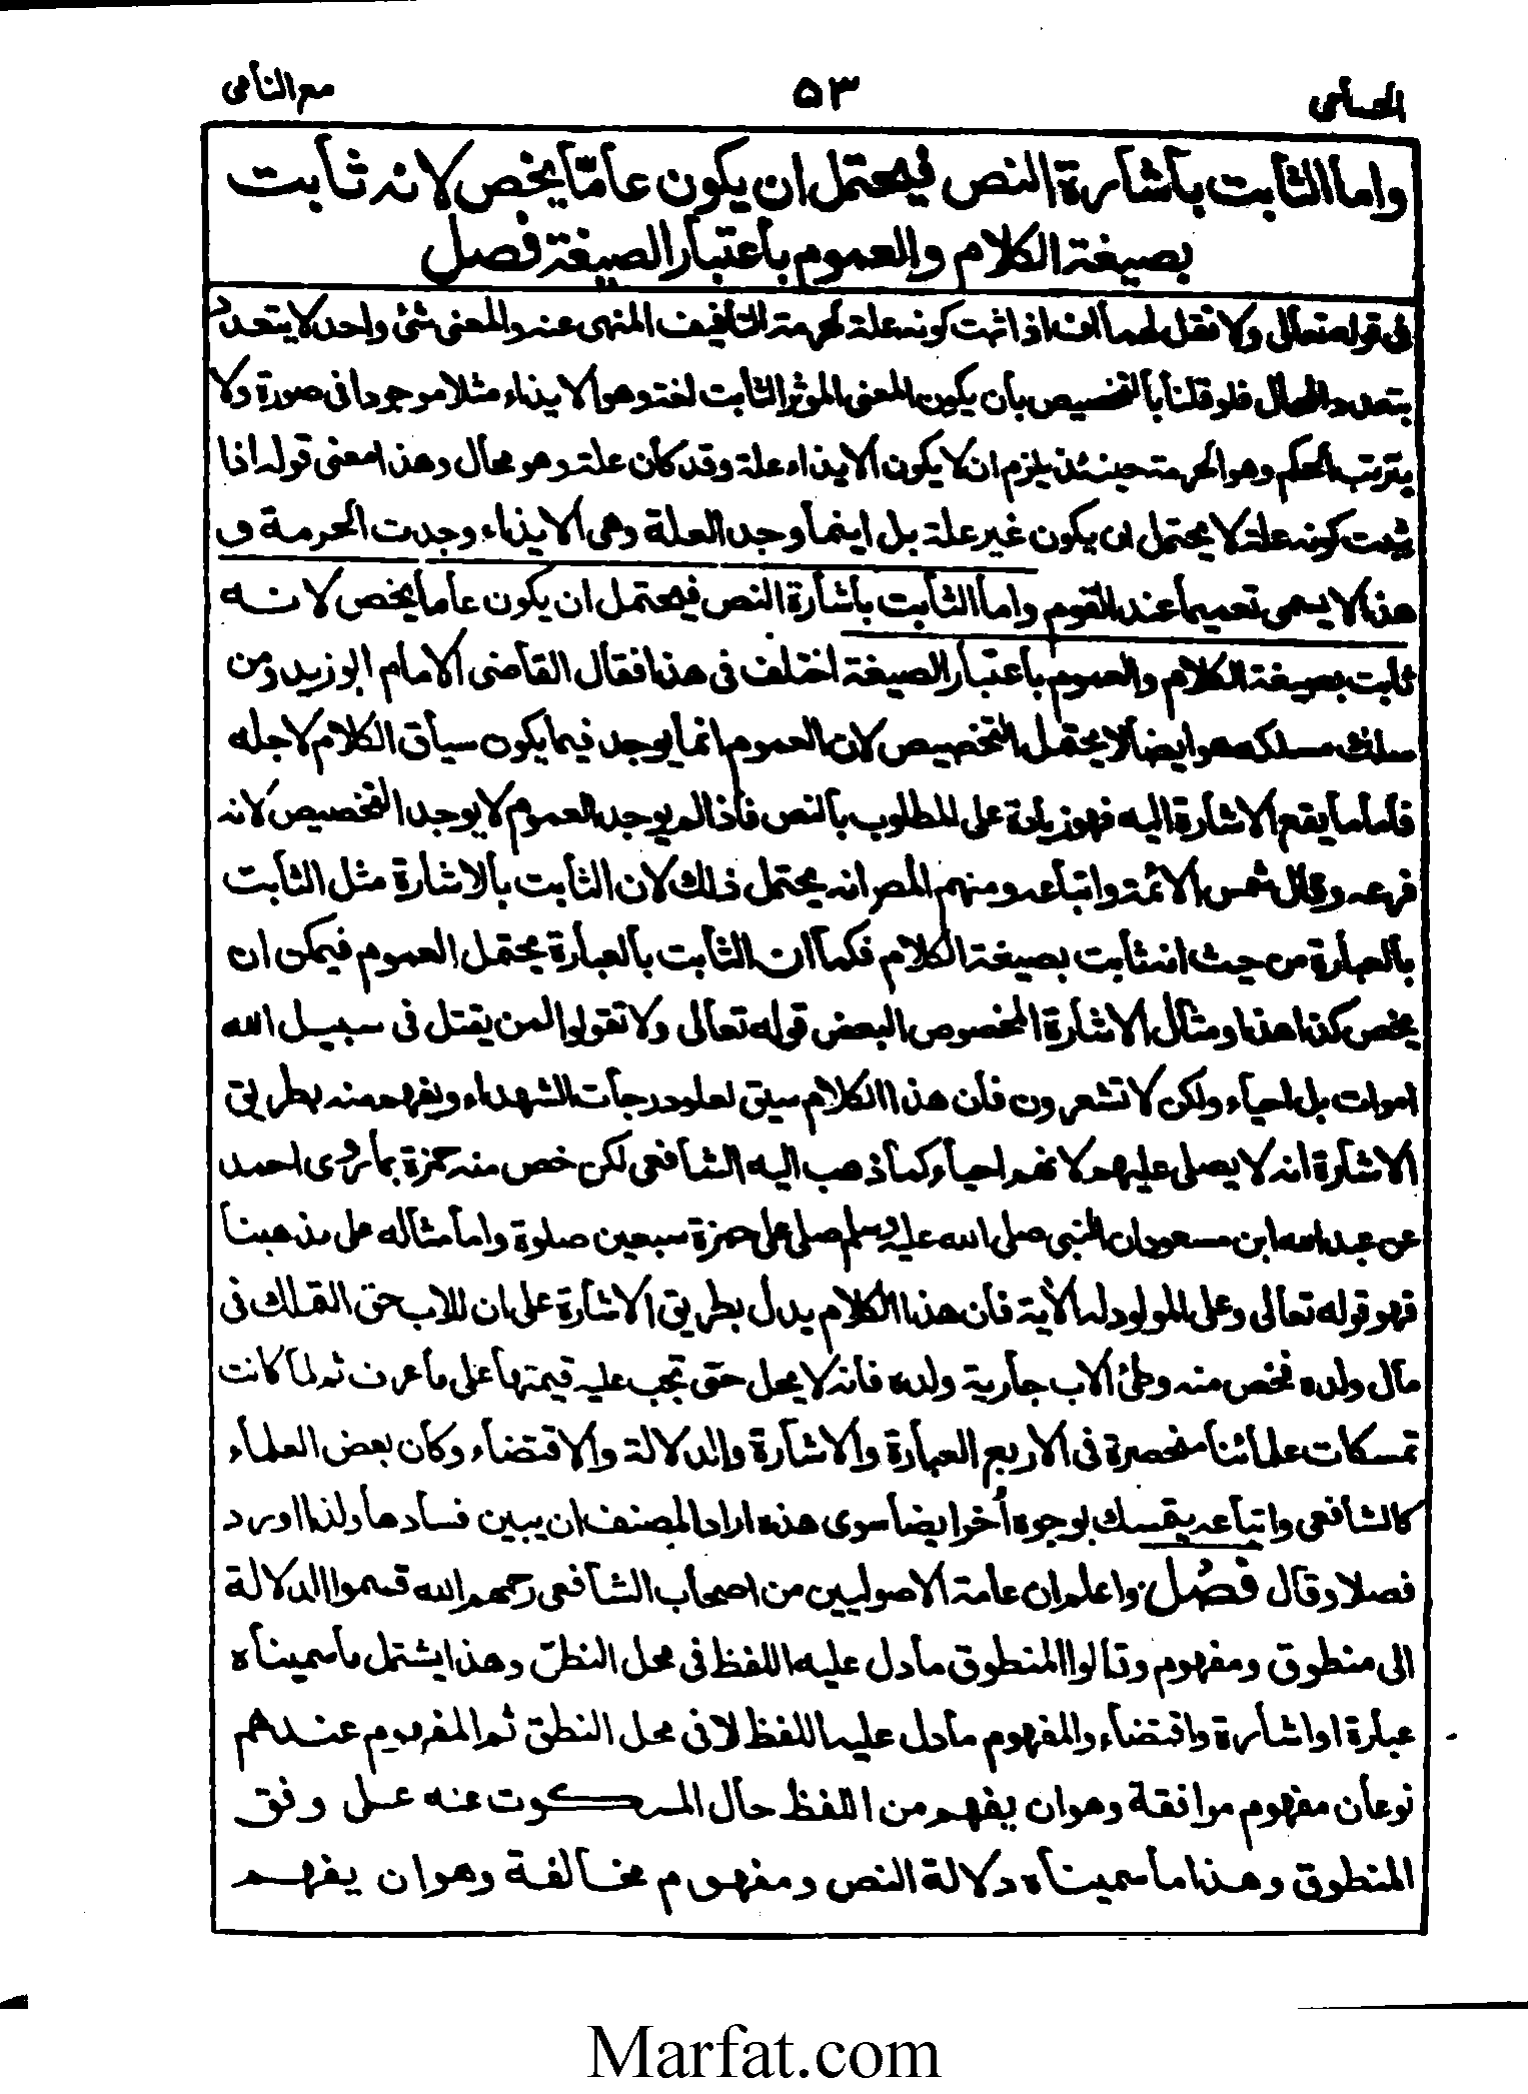 الحسامى ۵۳ مع النامى
واما الثابت بأشارة النص فيحتمل ان يكون عامّا يخص لانه ثابت
بصيغة الكلام والعموم باعتبار الصيغة فصل
فى قوله تعالى ولا تقل لهما اف اذا ثبت كونه علة لحرمة التأفيف المنهى عنه والمعنى شئ واحد لا يتعدد
بتعدد المحال فلو قلنا بالتخصيص بأن يكون المعنى الموثر الثابت لغة وهو الايذاء مثلا موجودا فى صورة ولا
يترتب الحكم وهو الحرمة حينئذ يلزم ان لا يكون الايذاء علة وقد كان علة وهو محال وهذا معنى قوله اذا
ثبت كونه علة لا يحتمل ان يكون غير علة بل اينما وجد العلة وهى الايذاء وجدت الحرمة و
هذا لا يسمى تعميما عند القوم واما الثابت بأشارة النص فيحتمل ان يكون عاما يخص لانه
ثابت بصيغة الكلام والعموم باعتبار الصيغة اختلف فى هذا فقال القاضى الامام ابو زيد ومن
سلك مسلكه هو ايضا لا يحتمل التخصيص لان العموم انما يوجد فيما يكون سياق الكلام لاجله
فاما ما يقع الاشارة اليه فهو زيادة على المطلوب بالنص فاذا لم يوجد العموم لا يوجد التخصيص لانه
فرعه وقال شمس الائمة واتباعه ومنهم المصر انه يحتمل ذلك لان الثابت بالاشارة مثل الثابت
بالعبارة من حيث انه ثابت بصيغة الكلام فكما ان الثابت بالعبارة يحتمل العموم فيمكن ان
يخص كذا هذا ومثال الاشارة المخصوص البعض قوله تعالى ولا تقولوا لمن يقتل فى سبيل الله
اموات بل احياء ولكن لا تشعرون فان هذا الكلام سيق لعلو درجات الشهداء ويفهم منه بطريق
الاشارة انه لا يصلى عليهم لانهم احياء كما ذهب اليه الشافعى لكن خص منه حمزة بما روى احمد
عن عبد الله ابن مسعود ان النبى صلى الله عليه وسلم صلى على حمزة سبعين صلوة واما مثاله على مذهبنا
فهو قوله تعالى وعلى المولود له الأية فان هذا الكلام يدل بطريق الاشارة على ان للاب حق التملك فى
مال ولده فخص منه وطئ الاب جارية ولده فانه لا يحل حتى تجب عليه قيمتها على ما عرف ثم لما كانت
تمسكات علمائنا منحصرة فى الاربع العبارة والاشارة والدلالة والاقتضاء وكان بعض العلماء
كالشافعى واتباعه يتمسك بوجوه أخر ايضا سوى هذه اراد المصنف ان يبين فسادها ولذا اورد
فصلا وقال فصل واعلم ان عامة الاصوليين من اصحاب الشافعى رحمهم الله قسموا الدلالة
الى منطوق ومفهوم وقالوا المنطوق ما دل عليه اللفظ فى محل النطق وهذا يشتمل ما سميناه
عبارة او اشارة واقتضاء والمفهوم ما دل عليه اللفظ لا فى محل النطق ثم المفهوم عندهم
نوعان مفهوم موافقة وهو ان يفهم من اللفظ حال المسكوت عنه على وفق
المنطوق وهذا ما سميناه دلالة النص ومفهوم مخالفة وهو ان يفهم
Marfat.com